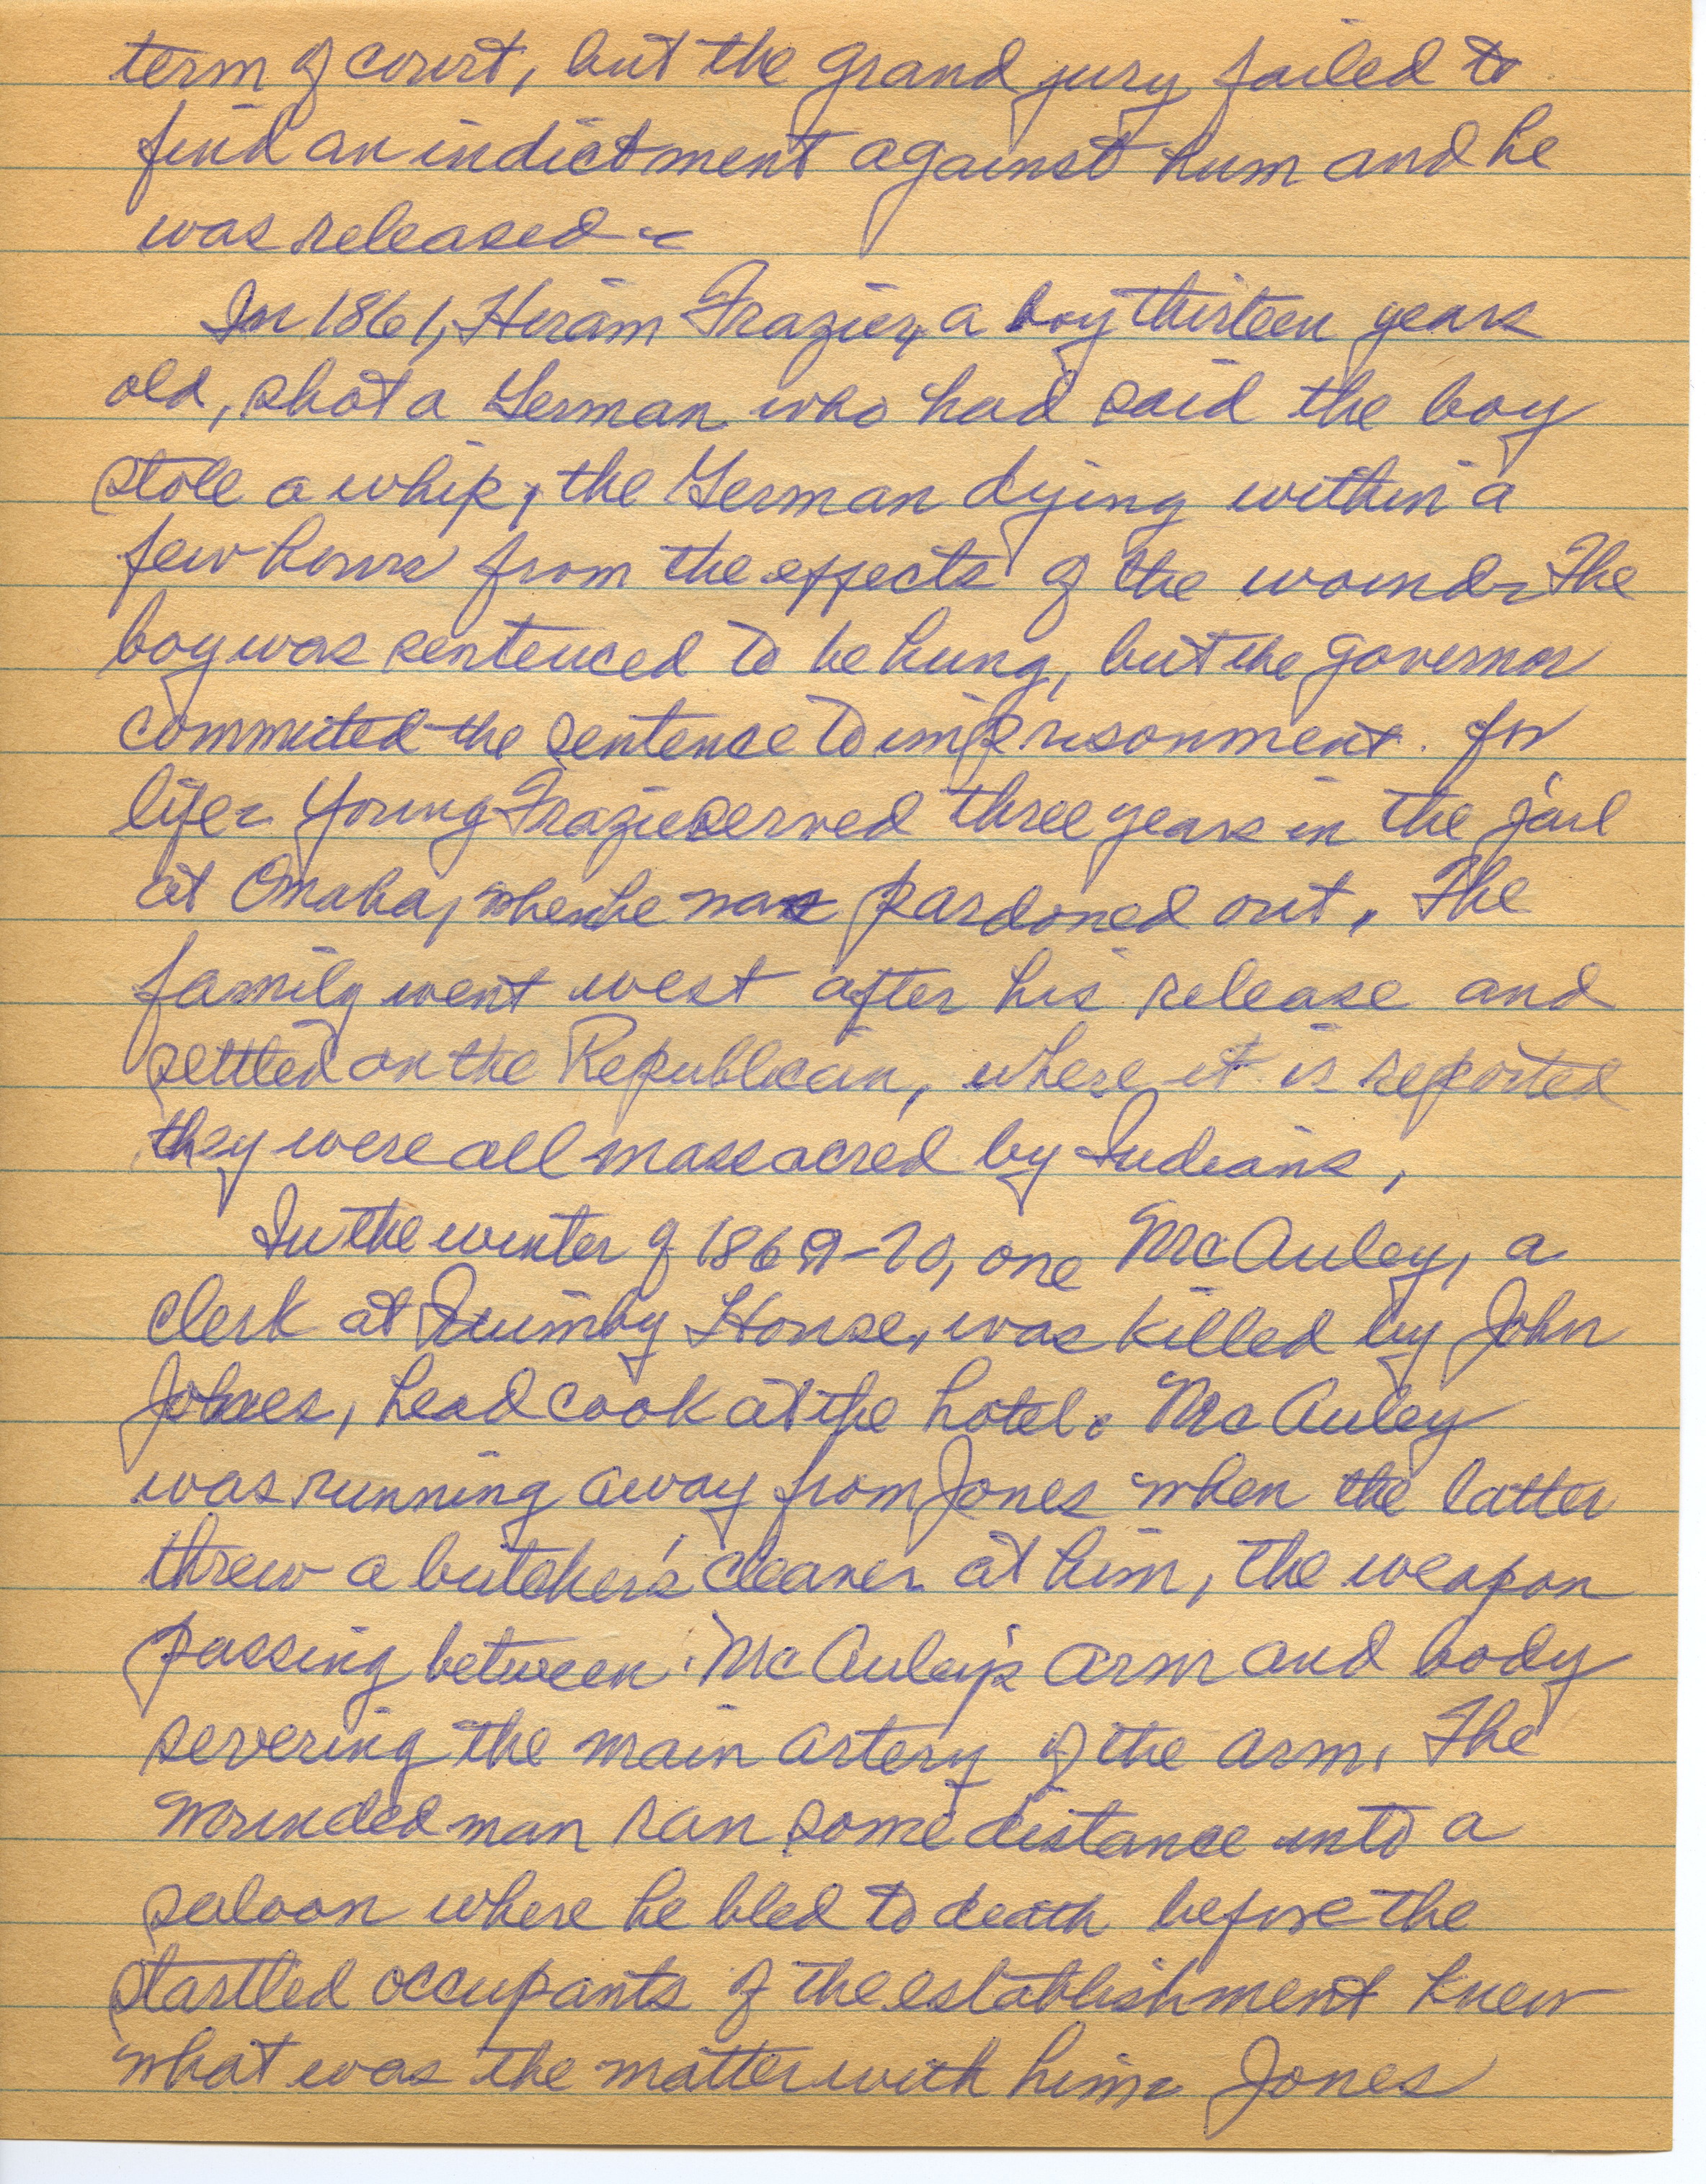 term of court, but the grand jury failed to
find an indictment against him and he
was released -
In 1861, Hiram Frazier, a boy thirteen years
old, shot a German who had said the boy
stole a whip, the German dying within a
few hours from the effects of the wound - The
boy was sentenced to be hung, but the governor
commuted the sentence to imprisonment for
life - Young Frazier served three years in the jail
at Omaha, when he was pardoned out. The
family went west after his release and
settled on the Republican, where it is reported
they were all massacred by Indians,
In the winter of 1869-70, one McAuley, a
clerk at Quimby House, was killed by John
Jones, head cook at the hotel. McAuley
was running away from Jones when the latter
threw a butcher's cleaver at him, the weapon
passing between McAuley's arm and body
severing the main artery of the arm. The
wounded man ran some distance into a
saloon where he bled to death before the
startled occupants of the establishment knew
what was the matter with him - Jones